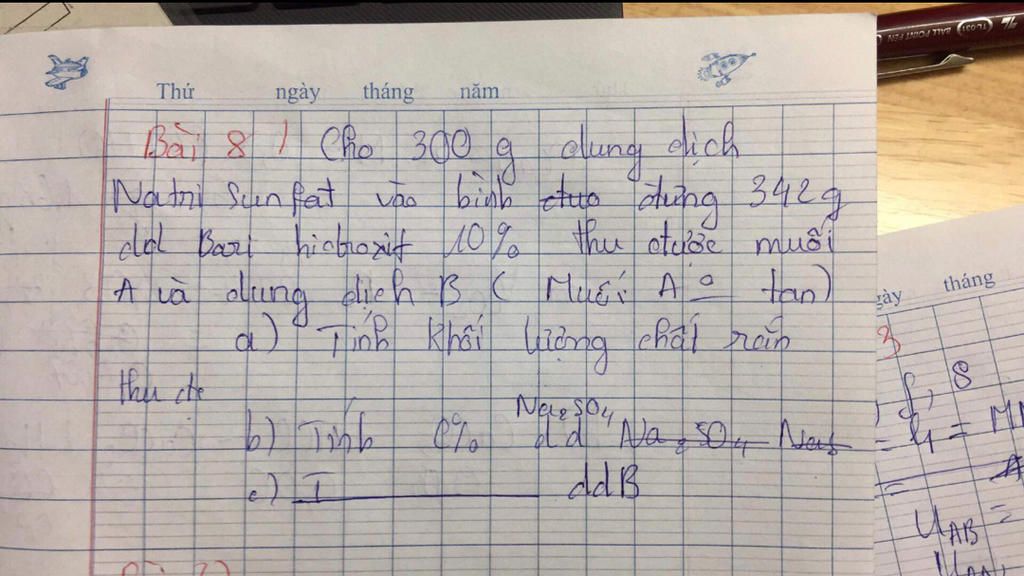 TL-031
BALL POINT PEN
Thứ ngày tháng năm
Bài 8 / Cho 300 g dung dịch
Natri Sunfat vào bình đựng 342g
dd Bari hidroxit 10% thu được muối
A và dung dịch B ( Muối A 0 tan)
a) Tính khối lượng chất rắn
thu đc
b) Tính C% dd Na2SO4
c) I dd B
ngày tháng
3
8
U_AB =